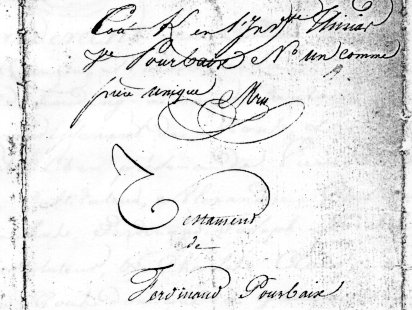 Coté N en l'Inv.re Thiriar
V.e Pourbaix N.o un comme
pièce unique
Testament
de
Ferdinand Pourbaix